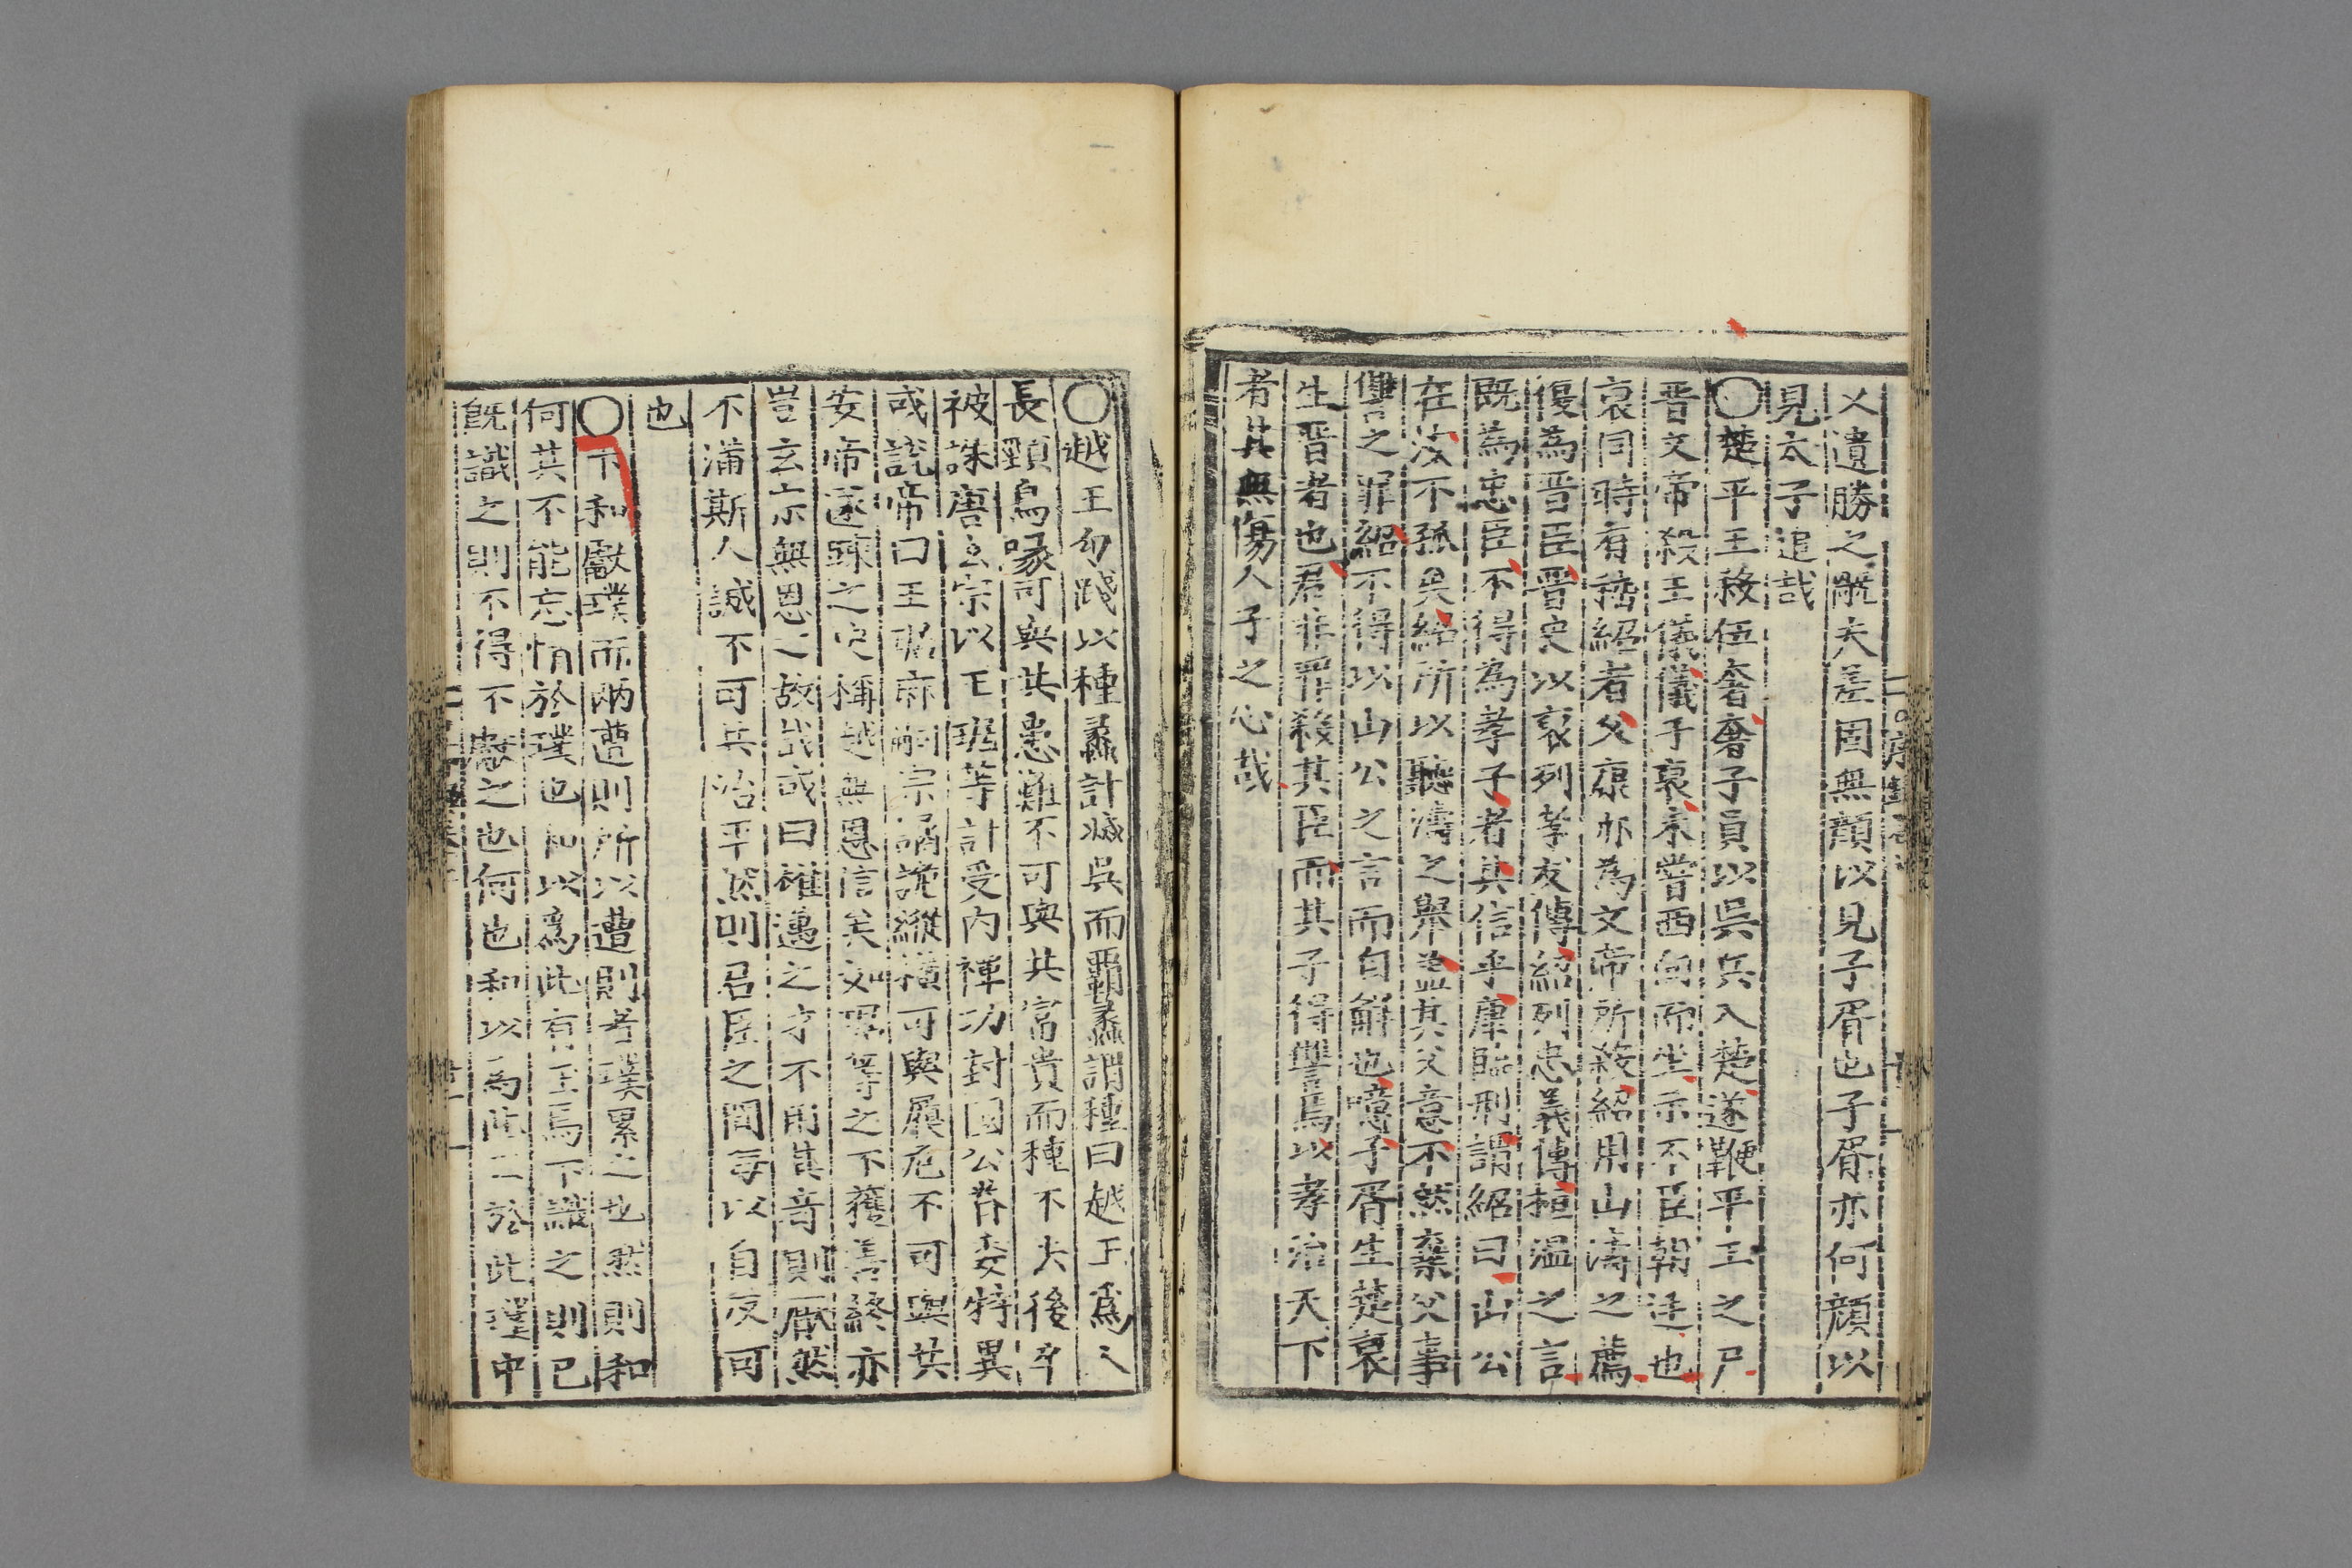 乂遺勝之戮夫差固無顔以見子胥也子胥亦何顔以
見太子追哉
○楚平王殺伍奢奢子員以吳兵入楚遂鞭平王之尸
晋文帝殺王儀儀子裒未嘗西向而坐示不臣朝廷也
裒同時有嵇紹者父康亦為文帝所殺紹用山濤之薦
復為晋臣晋史以裒列孝友傳紹列忠義傳桓溫之言
既為忠臣不得為孝子者其信乎康臨刑謂紹曰山公
在汝不孤矣紹所以聽濤之舉盖其父意不然棄父事
讐之罪紹不得以山公之言而自解也噫子胥生楚裒
生晋者也君非罪殺其臣而其子得讐焉以孝治天下
者其無傷人子之心哉
○越王勾踐以種蠡計滅吳而覇蠡謂種曰越王爲人
長頸烏喙可與共患難不可與共富貴而種不去後卒
被誅唐玄宗以王琚等計受內禪功封國公眷委特異
或說帝曰王琚麻嗣宗譎詭縱橫可與履危不可與共
安帝遂踈之史稱越無恩信矣如琚等之不獲善終亦
豈玄宗無恩之故哉或曰權邁之才不用其音則厭然
不滿斯人誠不可共治平然則君臣之間每以自反可
也
○卞和獻璞而兩遭刖所以遭刖者璞累之也然則和
何其不能忘情於璞也和以爲此有玉焉不識之則已
旣識之則不得不獻之也何也和以爲陷二於此璞中